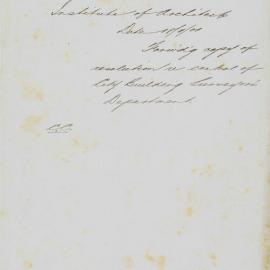 Institute of Architects
Date
Forwdg copy of
resolution re control of
City Building Surveyors
Department.